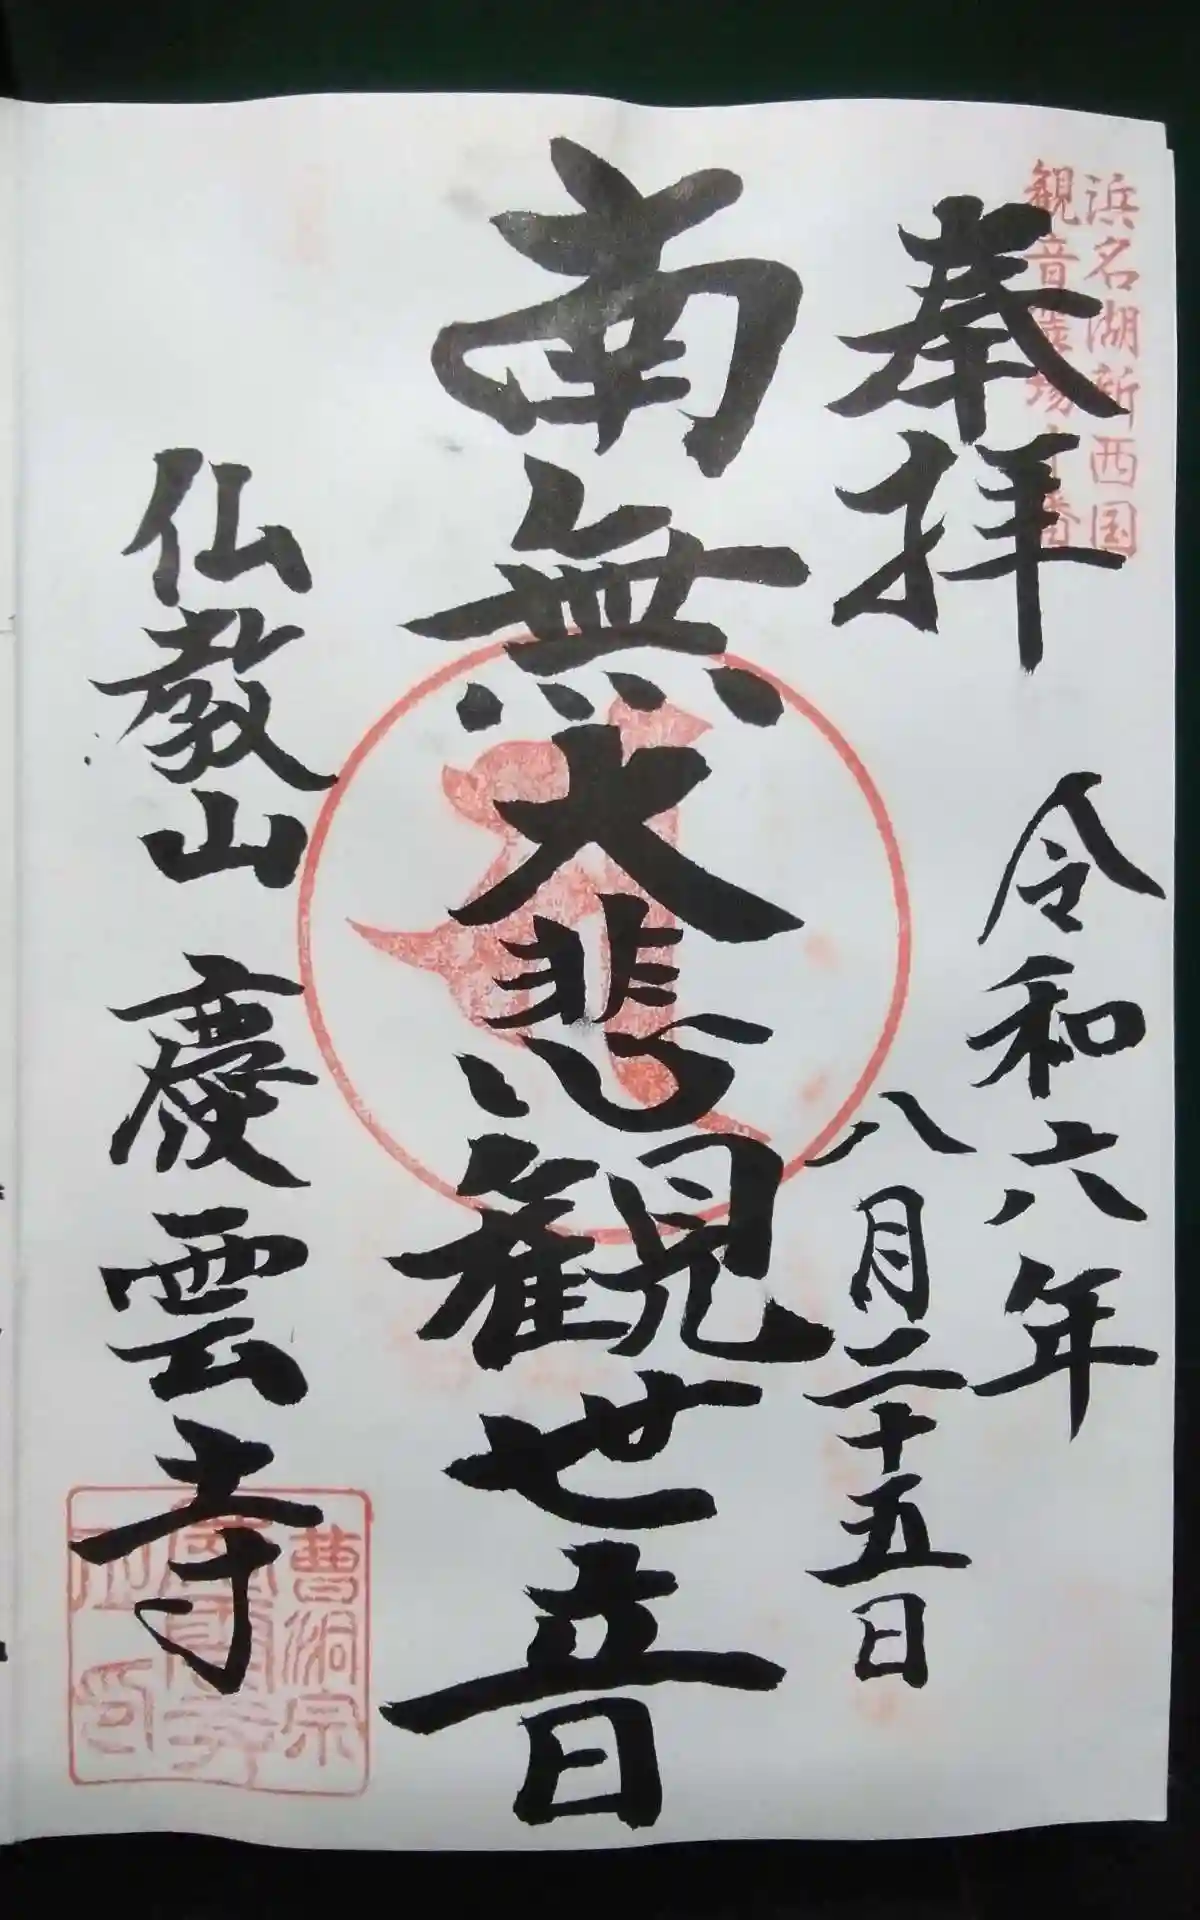 浜名湖新西国
観音霊場十番
奉拝
令和六年
八月二十五日
南無大悲観世音
仏教山 慶雲寺
曹洞宗
慶雲寺